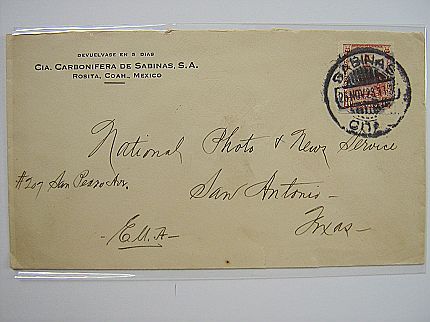 DEVUELVASE EN 5 DIAS
CIA. CARBONIFERA DE SABINAS, S.A.
ROSITA, COAH., MEXICO
SABINAS
NOV
National Photo & News Service
#207 San Pedro Ave.
San Antonio-
Texas-
-E.U.A-